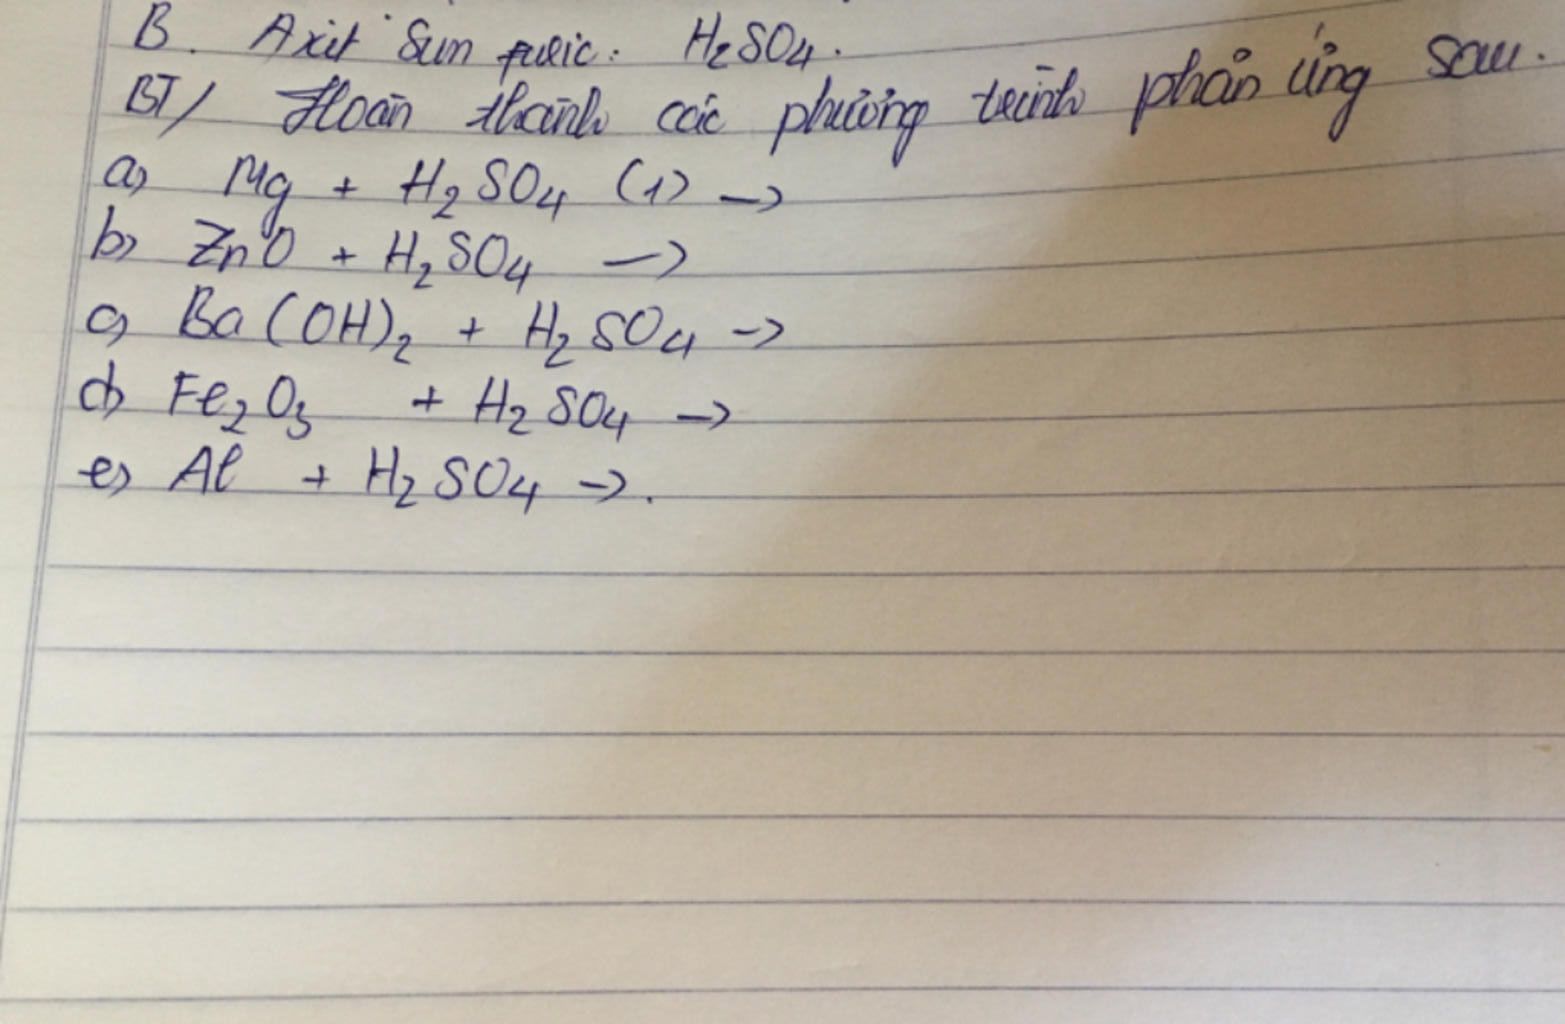 B. Axit Sunfuric: H₂SO₄.
BT/ Hoàn thành các phương trình phản ứng sau.
a) Mg + H₂SO₄ (l) →
b) ZnO + H₂SO₄ →
c) Ba(OH)₂ + H₂SO₄ →
d) Fe₂O₃ + H₂SO₄ →
e) Al + H₂SO₄ →.